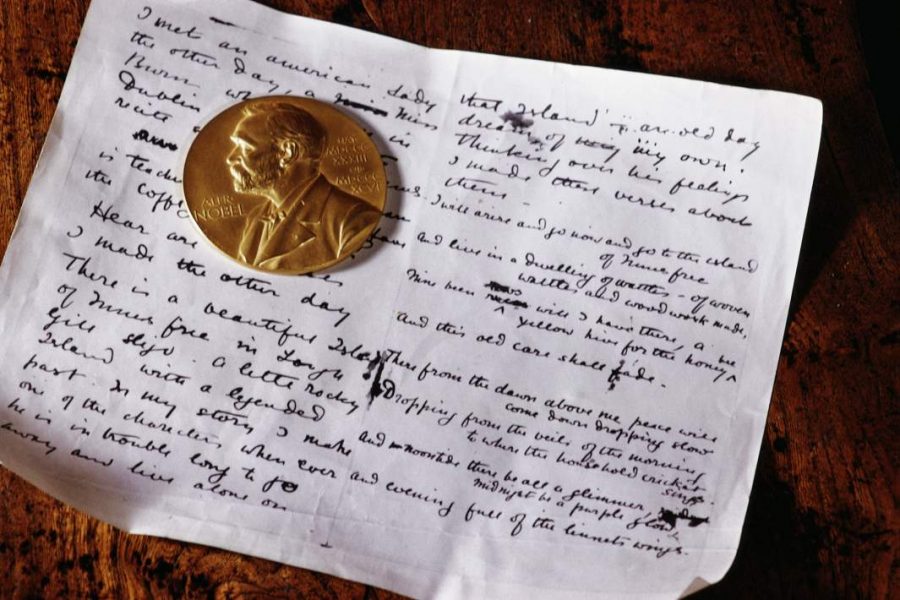 I met an american Lady
the other day, a Miss
Burn who
Dublin in
write
is teach
the coffe
Hear are
I made the other day
There is a beautiful Island
of Innis free in Lough
Gill Sligo. A little rocky
Island with a legended
past. In my story I make
one of the characters when ever
he is in trouble long to go
away and live alone on
ALFR.
NOBEL
NAT.
MDCCC
XXXIII
OB.
MDCCC
XCVI
that Island – an old day
dream of my own.
Thinking over his feelings
I made these verses about
them –
I will arise and go now and go to the island
of Innis free
And live in a dwelling of wattles – of woven
wattles and wood work made,
Nine bean rows will I have there, a
yellow hive for the honey bee
And this old care shall fade.
There from the dawn above me peace will
come down dropping slow
Dropping from the veils of the morning
to where the household cricket sings.
And noontide there be all a glimmer,
midnight be a purple glow
And evening full of the linnets wings.